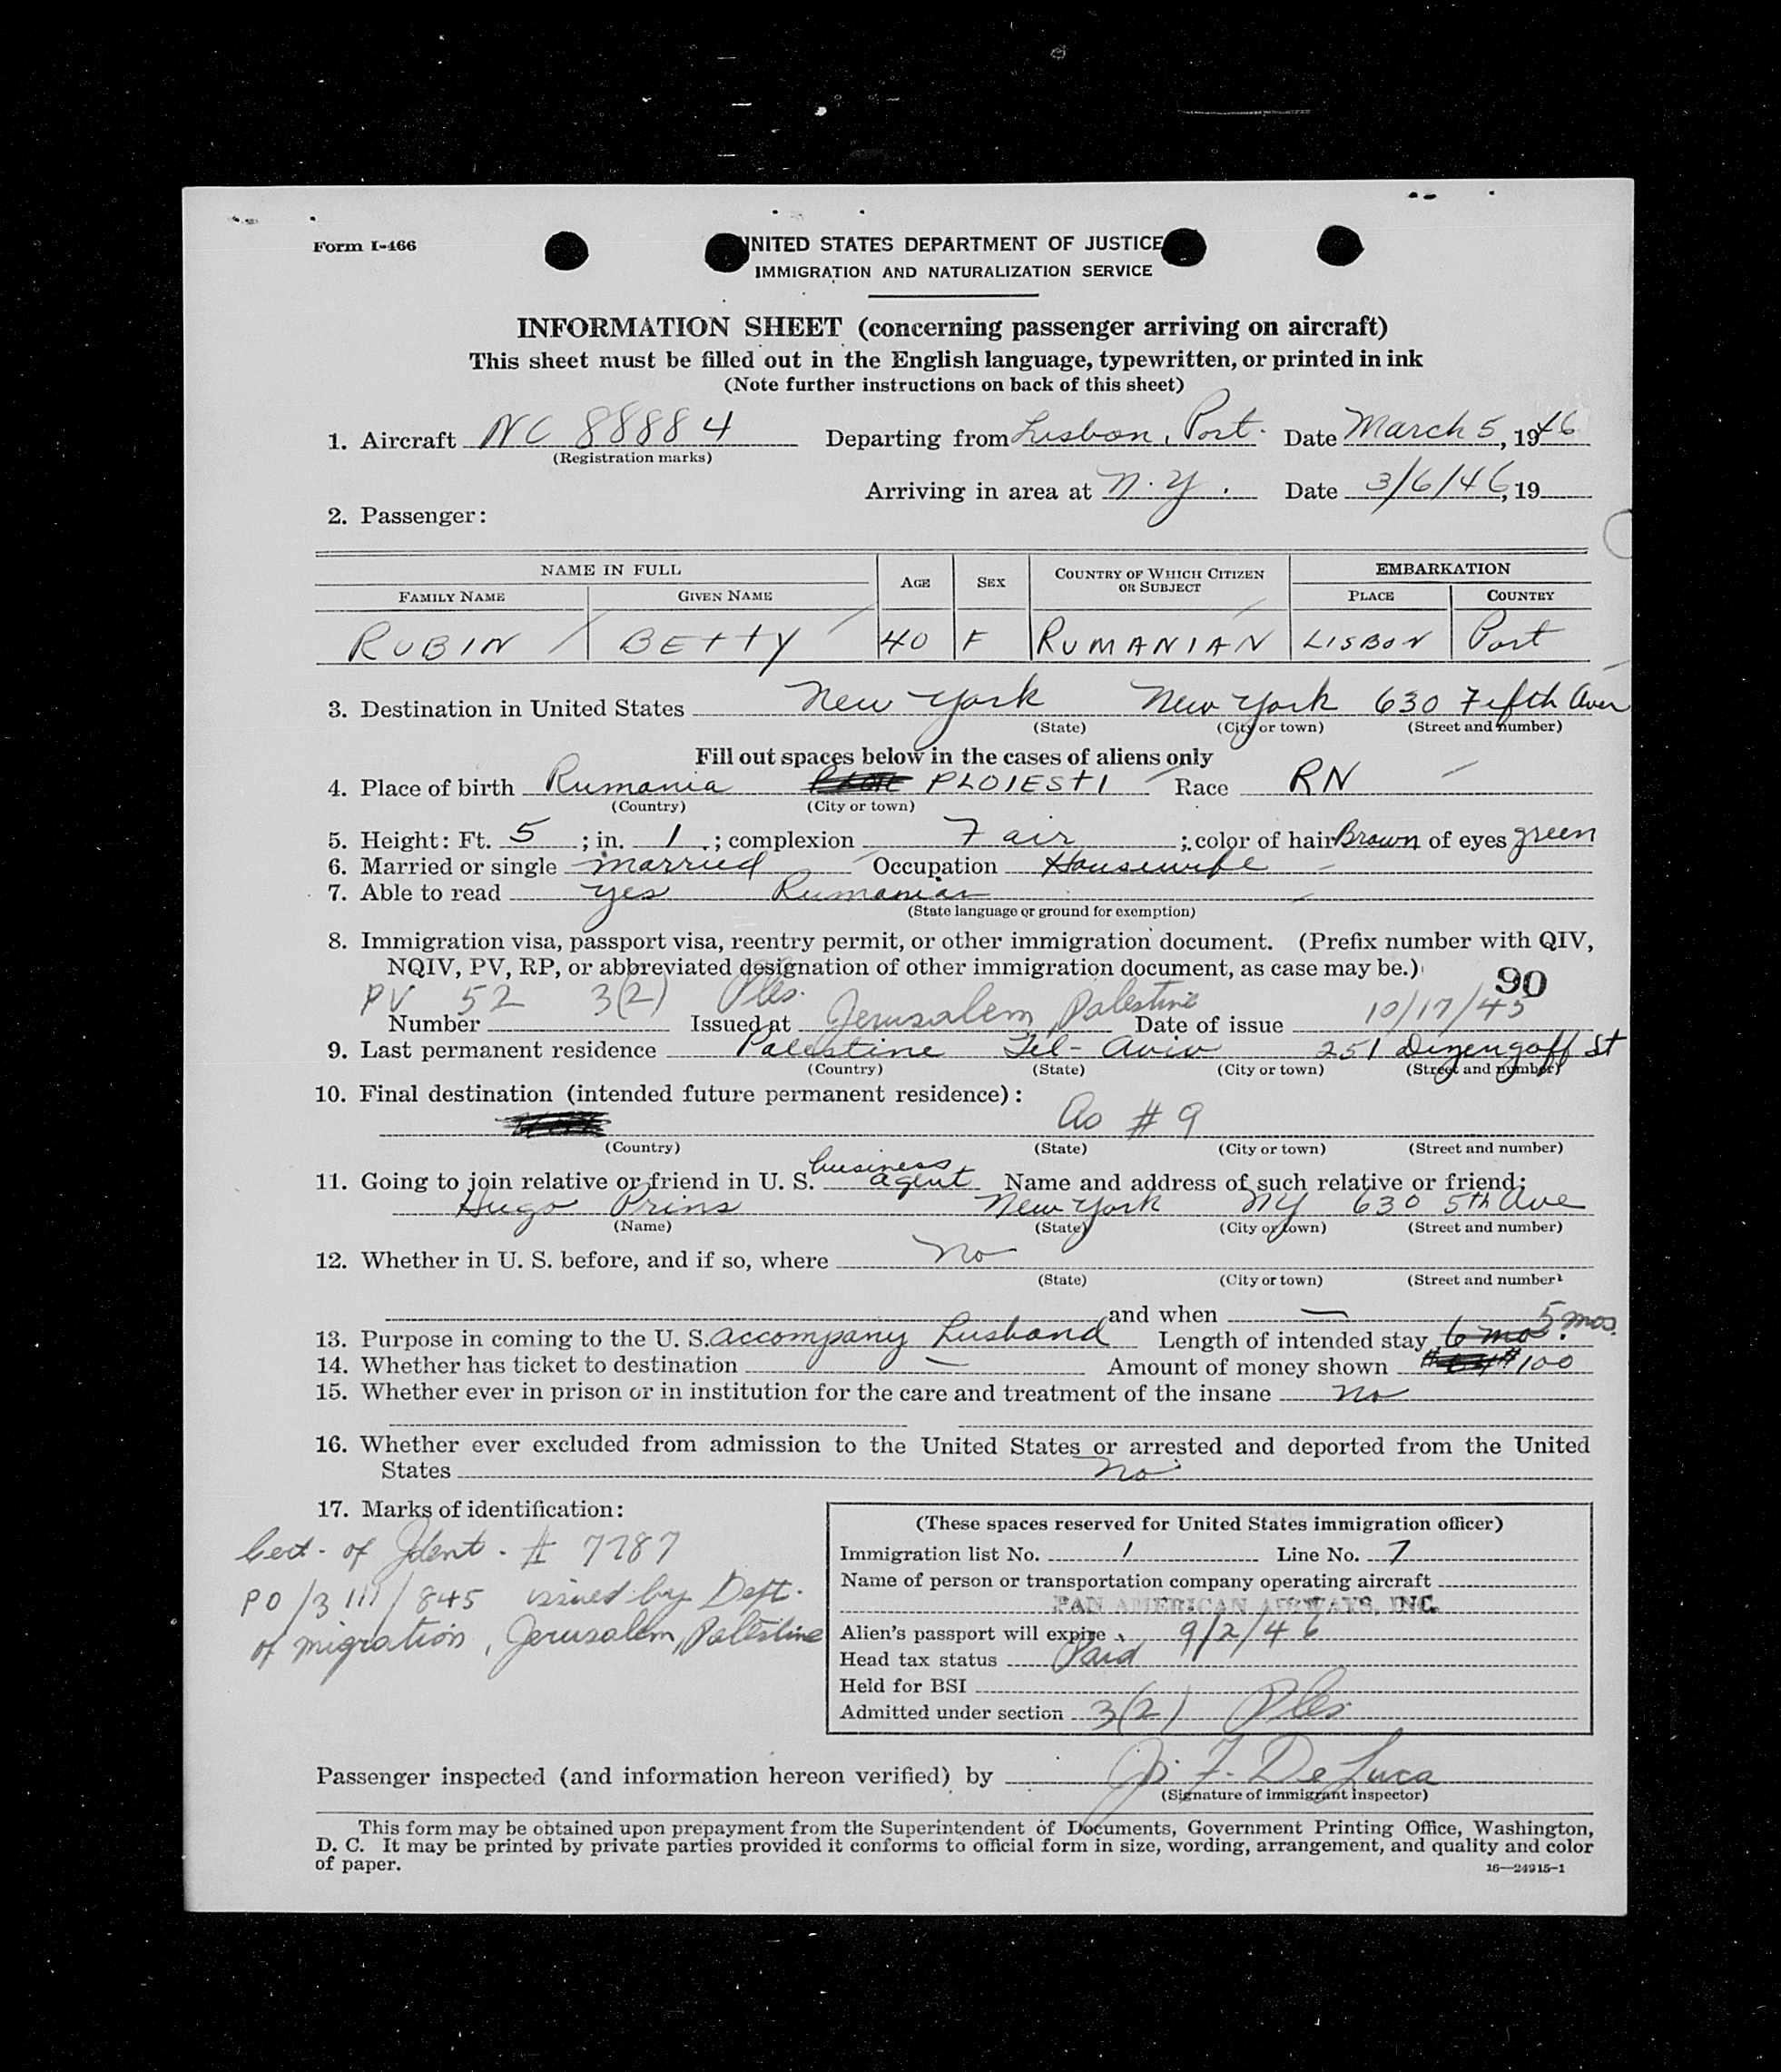 Form I-466
UNITED STATES DEPARTMENT OF JUSTICE
IMMIGRATION AND NATURALIZATION SERVICE
INFORMATION SHEET (concerning passenger arriving on aircraft)
This sheet must be filled out in the English language, typewritten, or printed in ink
(Note further instructions on back of this sheet)
1. Aircraft NC 88884 Departing from Lisbon, Port. Date March 5, 1946
(Registration marks)
Arriving in area at N.Y. Date 3/6/46, 19
2. Passenger:
NAME IN FULL AGE SEX COUNTRY OF WHICH CITIZEN OR SUBJECT EMBARKATION
FAMILY NAME GIVEN NAME PLACE COUNTRY
RUBIN BETTY 40 F RUMANIAN LISBON Port
3. Destination in United States New York New York 630 Fifth Aven
(State) (City or town) (Street and number)
Fill out spaces below in the cases of aliens only
4. Place of birth Rumania PLOIESTI Race RN
(Country) (City or town)
5. Height: Ft. 5; in. 1; complexion Fair; color of hair Brown of eyes green
6. Married or single married Occupation Housewife
7. Able to read yes Rumanian
(State language or ground for exemption)
8. Immigration visa, passport visa, reentry permit, or other immigration document. (Prefix number with QIV,
NQIV, PV, RP, or abbreviated designation of other immigration document, as case may be.)
90
PV 52 3(2)
Number Issued at Jerusalem Palestine Date of issue 10/17/45
9. Last permanent residence Palestine Tel-Aviv 251 Dizengoff St
(Country) (State) (City or town) (Street and number)
10. Final destination (intended future permanent residence):
As # 9
(Country) (State) (City or town) (Street and number)
11. Going to join relative or friend in U. S. business agent Name and address of such relative or friend:
Hugo Prins New York NY 630 5th Ave
(Name) (State) (City or town) (Street and number)
12. Whether in U. S. before, and if so, where No
(State) (City or town) (Street and number)
and when —
13. Purpose in coming to the U. S. accompany husband Length of intended stay 6 mos. 5 mos.
14. Whether has ticket to destination — Amount of money shown $100
15. Whether ever in prison or in institution for the care and treatment of the insane no
16. Whether ever excluded from admission to the United States or arrested and deported from the United
States no
17. Marks of identification:
Cert. of Ident. # 7787
PO/3/111/845 issued by Dept.
of migration, Jerusalem, Palestine
(These spaces reserved for United States immigration officer)
Immigration list No. 1 Line No. 7
Name of person or transportation company operating aircraft
PAN AMERICAN AIRWAYS, INC.
Alien's passport will expire 9/2/46
Head tax status Paid
Held for BSI
Admitted under section 3(2)
Passenger inspected (and information hereon verified) by J. F. De Luca
(Signature of immigrant inspector)
This form may be obtained upon prepayment from the Superintendent of Documents, Government Printing Office, Washington,
D. C. It may be printed by private parties provided it conforms to official form in size, wording, arrangement, and quality and color
of paper.
16—24915-1